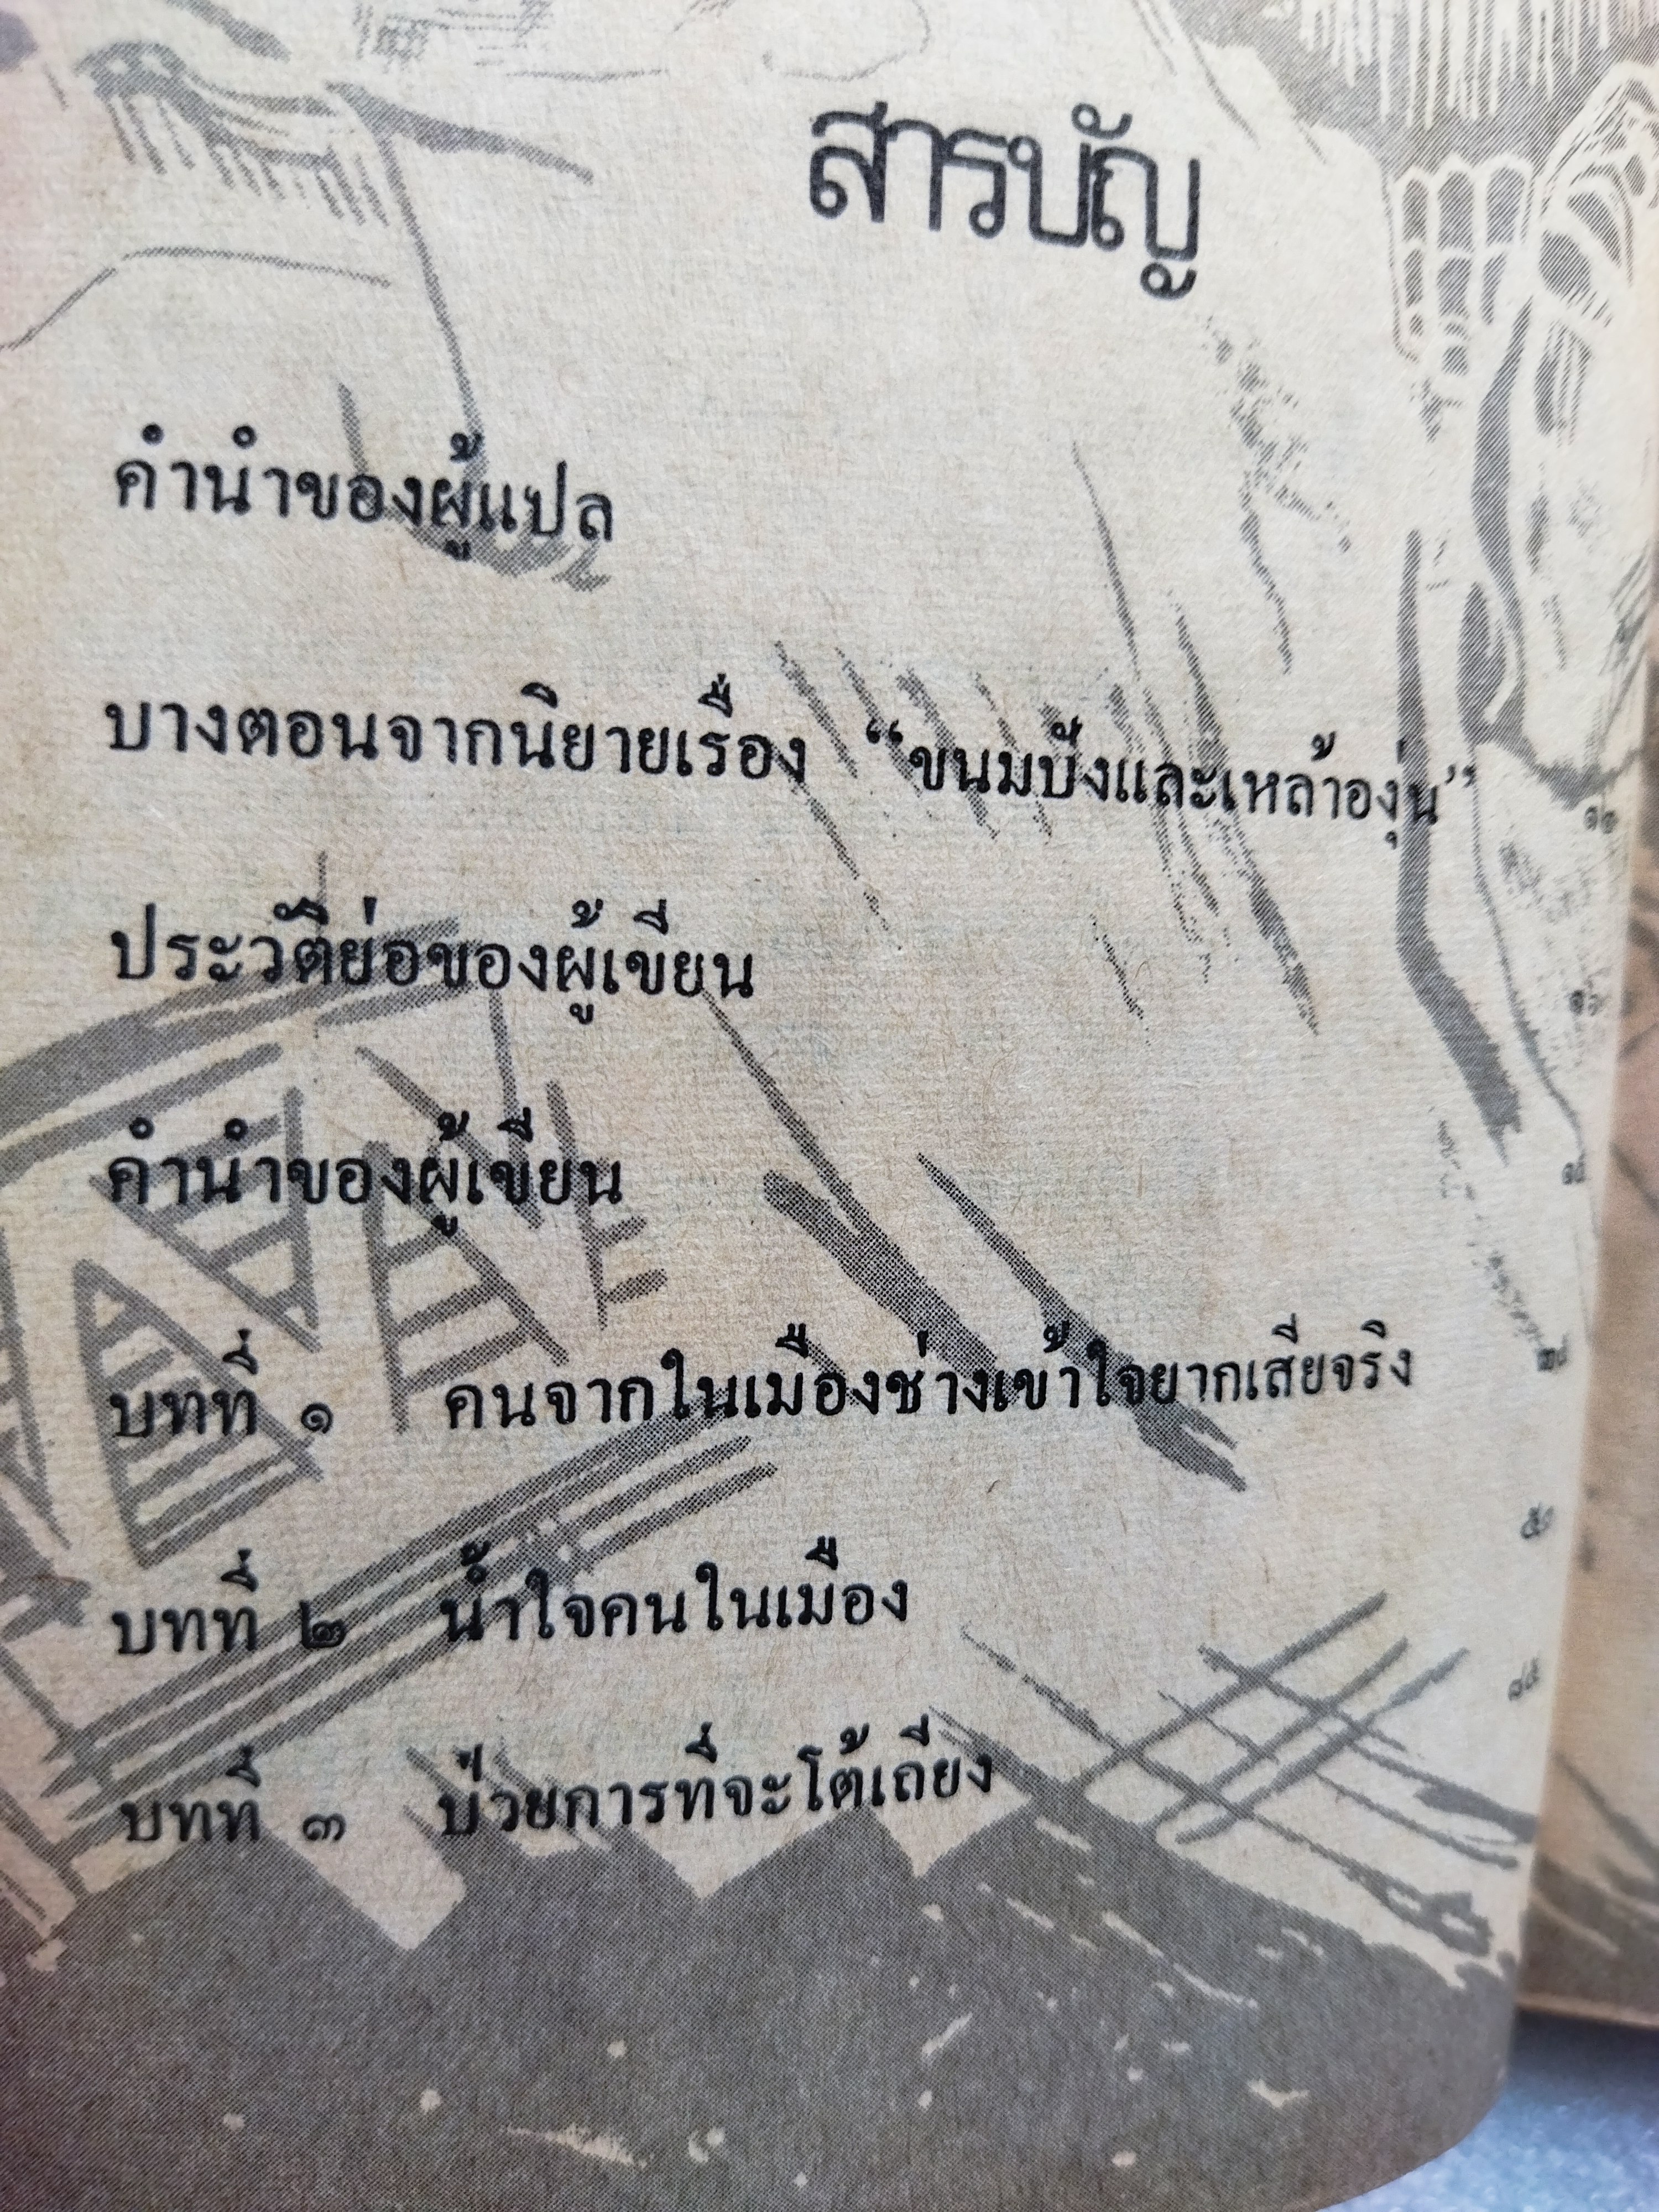 สารบัญ
คำนำของผู้แปล
บางตอนจากนิยายเรื่อง “ขนมปังและเหล้าองุ่น”
ประวัติย่อของผู้เขียน
คำนำของผู้เขียน
บทที่ ๑ คนจากในเมืองช่างเข้าใจยากเสียจริง
บทที่ ๒ น้ำใจคนในเมือง
บทที่ ๓ ป่วยการที่จะโต้เถียง